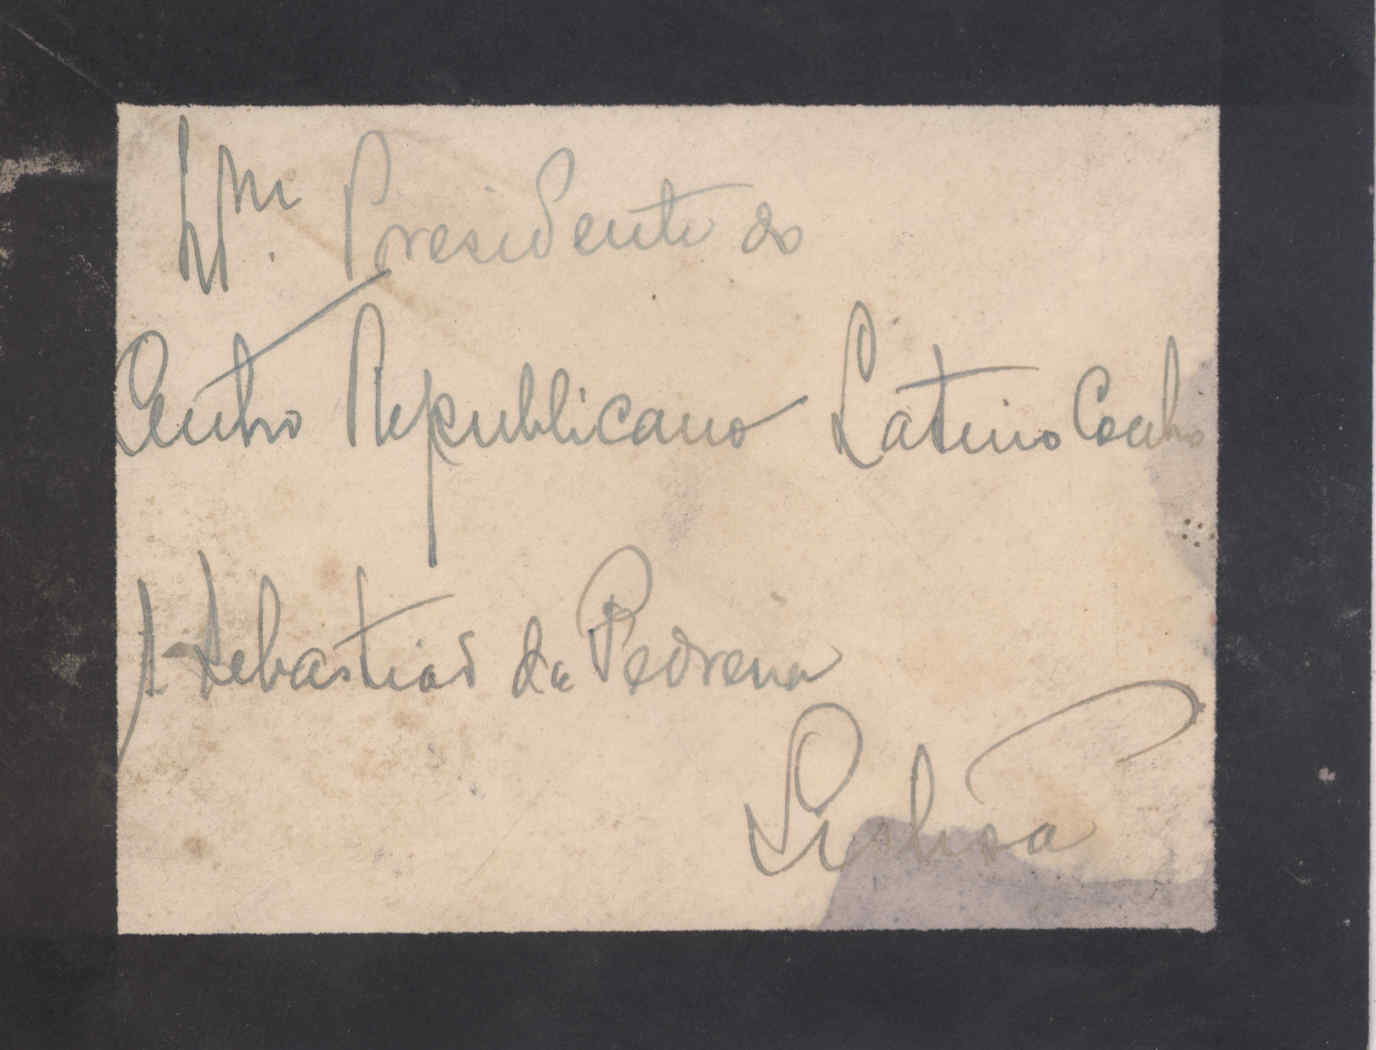 Presidente do
Centro Republicano Latino Coelho
S. Sebastião da Pedreira
Lisboa